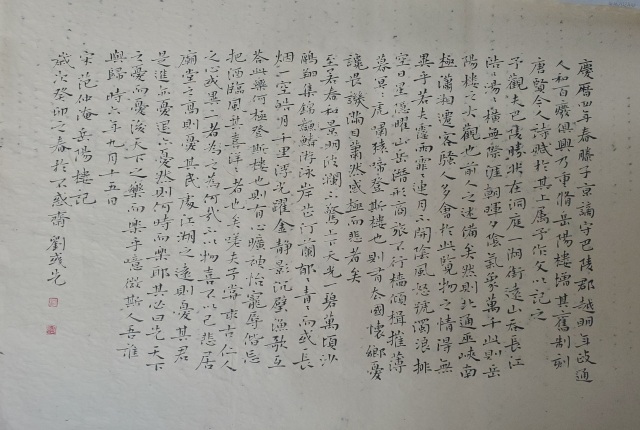 慶曆四年春滕子京謫守巴陵郡越明年政通
人和百廢俱興乃重脩岳陽樓增其舊制刻
唐賢今人詩賦於其上屬予作文以記之
予觀夫巴陵勝狀在洞庭一湖銜遠山吞長江
浩浩湯湯橫無際涯朝暉夕陰氣象萬千此則岳
陽樓之大觀也前人之述備矣然則北通巫峽南
極瀟湘遷客騷人多會於此覽物之情得無
異乎若夫霪雨霏霏連月不開陰風怒號濁浪排
空日星隱曜山岳潛形商旅不行檣傾楫摧薄
暮冥冥虎嘯猿啼登斯樓也則有去國懷鄉憂
讒畏譏滿目蕭然感極而悲者矣
至若春和景明波瀾不驚上下天光一碧萬頃沙
鷗翔集錦鱗游泳岸芷汀蘭郁郁青青而或長
烟一空皓月千里浮光躍金靜影沉璧漁歌互
答此樂何極登斯樓也則有心曠神怡寵辱皆忘
把酒臨風其喜洋洋者也矣嗟夫予嘗求古仁人
之心或異二者之為何哉不以物喜不以己悲居
廟堂之高則憂其民處江湖之遠則憂其君
是進亦憂退亦憂然則何時而樂耶其必曰先天下
之憂而憂後天下之樂而樂乎噫微斯人吾誰
與歸時六年九月十五日
宋范仲淹岳陽樓記
歲次癸卯之春於不惑齋劉